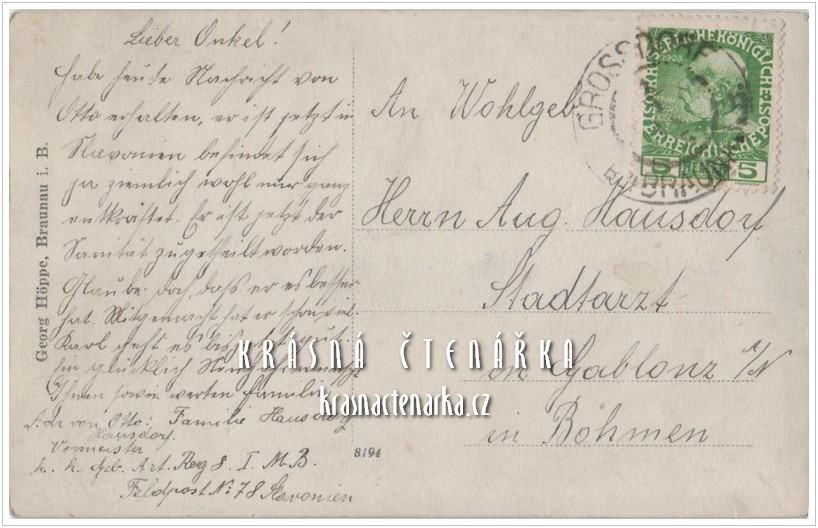 Lieber Onkel!
habe heute Nachricht von
Otto erhalten, er ist jetzt in
Slavonien befindet sich
ja ziemlich wohl nur ganz
entkräftet. Er ist jetzt der
Sanität zugetheilt worden.
Glaube doch, dass er es besser
hat. Mitgemacht hat er schon viel
Karl geht es bis jetzt gut.
glücklich
Ihnen sowie werten Familie
Familie Hausdorf
Adr von Otto:
Hausdorf
Vormeister
k. k. Geb. Art. Reg 8. I. M. B.
Feldpost No 78 Slavonien
Georg Höppe, Braunau i. B.
8194
An Wohlgeb
Herrn Aug. Hausdorf
Stadtarzt
in Gablonz a/N
in Böhmen
GROSSDORF
BRAUNAU
KAISERLICHEKÖNIGLICHE
ÖSTERREICHISCHE POST
1908
5 5
KRÁSNÁ ČTENÁŘKA
krasnactenarka.cz